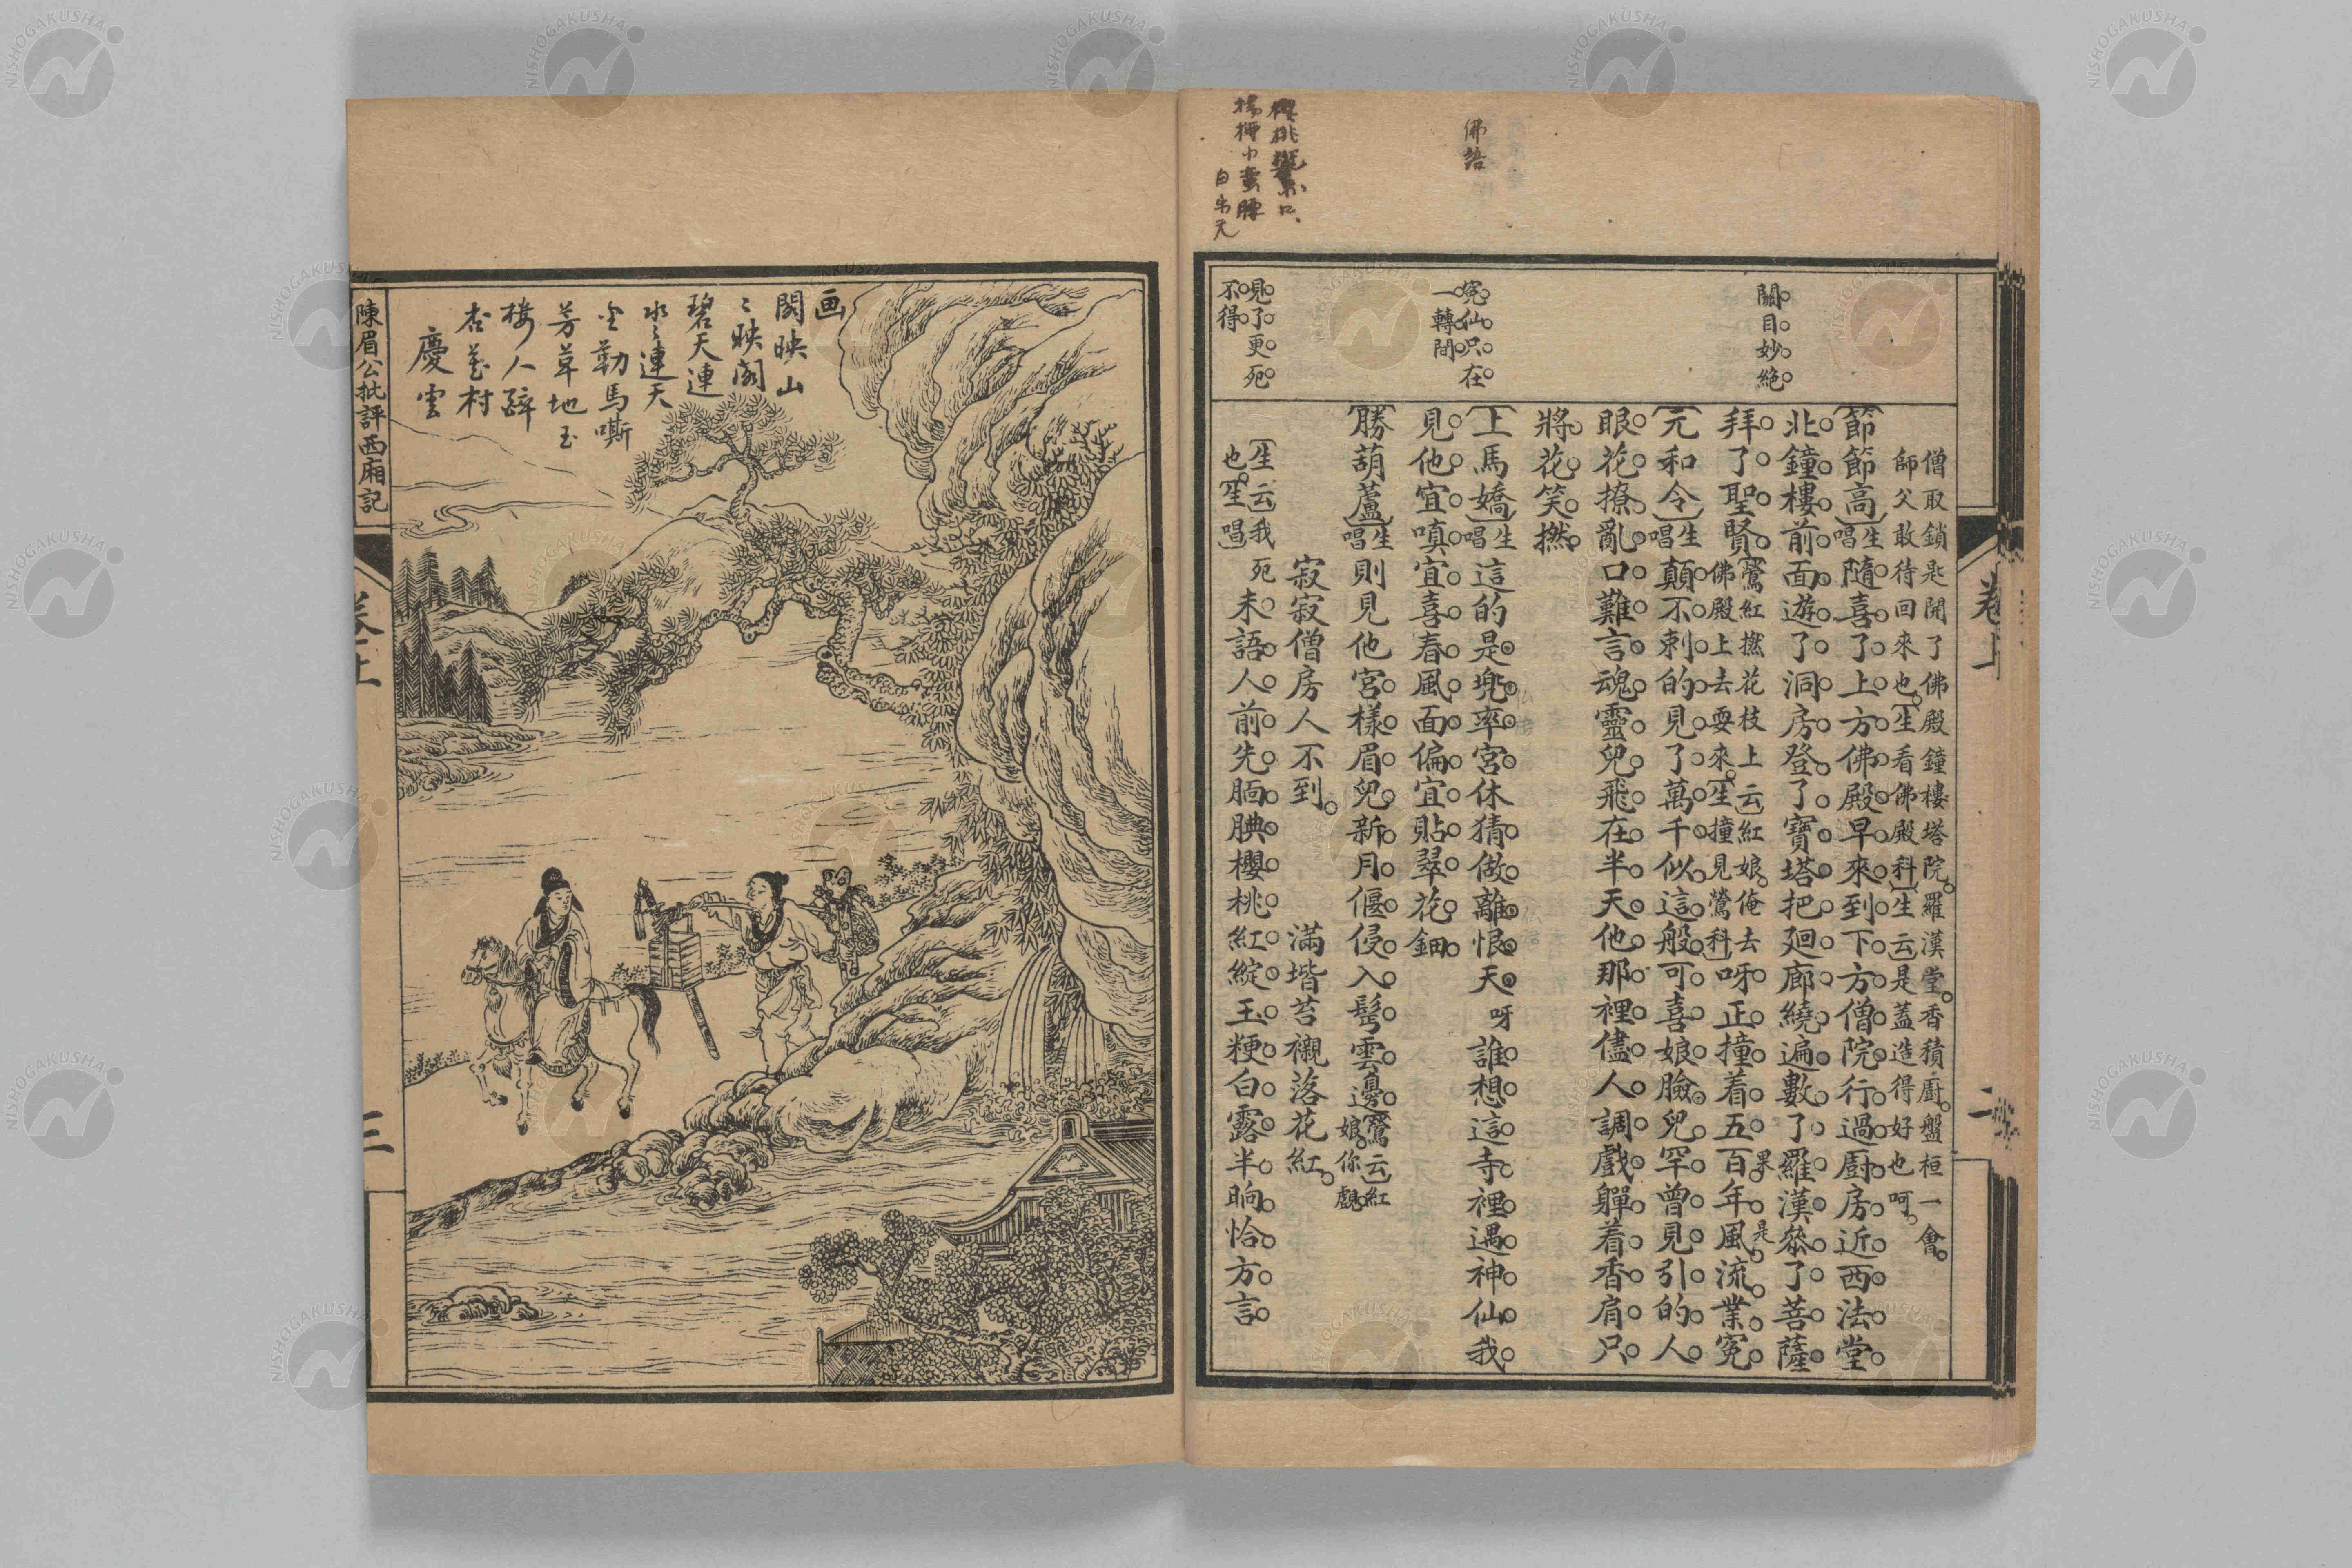 佛語
櫻桃樊素口
楊柳小蠻腰
白樂天
關目妙絶
寃仙只在
一轉間
見了更死
不得
僧取鎖匙開了佛殿鐘樓塔院羅漢堂香積廚盤桓一會
師父敢待回來也〔生看佛殿科〕〔生云〕是蓋造得好也呵
〔節節高〕〔生唱〕隨喜了上方佛殿早來到下方僧院行過廚房近西法堂
北鐘樓前面遊了洞房登了寶塔把廻廊繞遍數了羅漢叅了菩薩
拜了聖賢〔鶯紅撚花枝上云〕紅娘俺去佛殿上去耍來〔生撞見鶯科〕呀正撞着五百年風流業寃果是
〔元和令〕〔生唱〕顛不剌的見了萬千似這般可喜娘臉兒罕曾見引的人
眼花撩亂口難言魂靈兒飛在半天他那裡儘人調戲嚲着香肩只
將花笑撚
〔上馬嬌〕〔生唱〕這的是兜率宮休猜做離恨天呀誰想這寺裡遇神仙我
見他宜嗔宜喜春風面偏宜貼翠花鈿
〔勝葫蘆〕〔生唱〕則見他宮樣眉兒新月偃侵入髩雲邊〔鶯云〕紅娘你覷
寂寂僧房人不到 滿堦苔襯落花紅
〔生云〕我死也〔生唱〕未語人前先腼腆櫻桃紅綻玉粳白露半晌恰方言
卷上
二
画
閣映山
〻映閣
碧天連
水〻連天
金勒馬嘶
芳草地玉
樓人醉
杏花村
慶雲
陳眉公批評西廂記
卷上
三
NISHOGAKUSHA